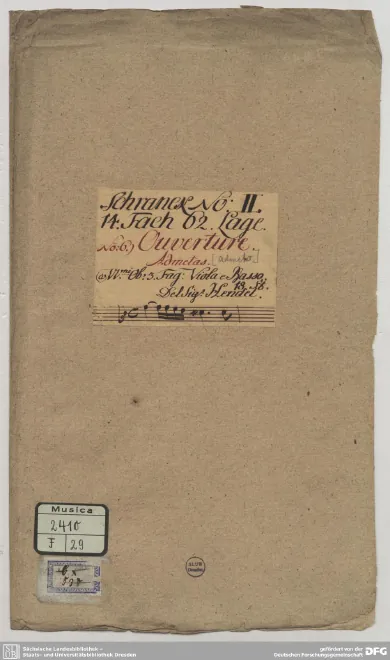 Schranck No: II.
14. Fach 62. Lage.
No: 6.) Ouverture.
Admetas. [Admeto.]
Ob: 3. Fag: Viola e Basso.
13. St.
Del Sigr Hendel.
Musica
2410
F 29
SLUB
Dresden
Sächsische Landesbibliothek –
Staats- und Universitätsbibliothek Dresden
gefördert von der
Deutschen Forschungsgemeinschaft
DFG